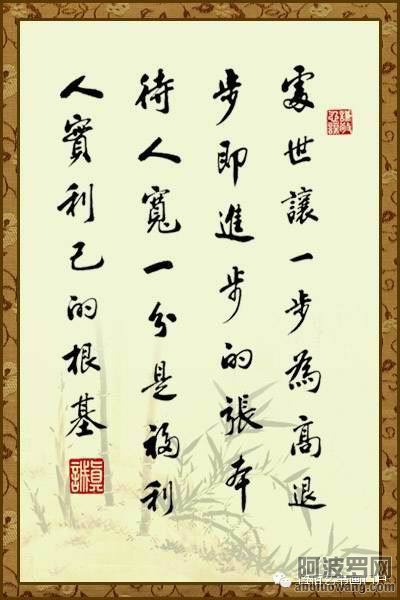 處世讓一步為高退
步即進步的張本
待人寬一分是福利
人實利己的根基
真誠
阿波罗网
aboluowang.com